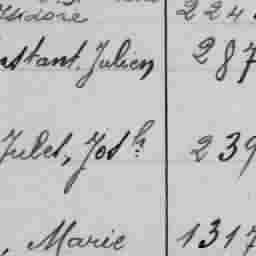 Isidore 224
nstant. Julien 287
Jules, Josh 239
, Marie 1317